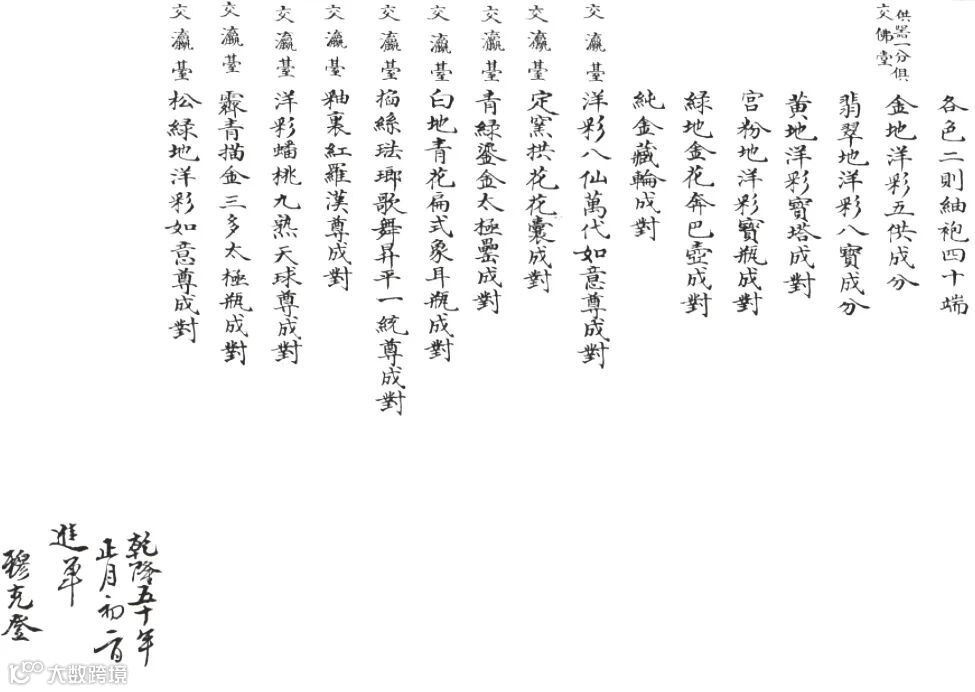 各色二則紬袍四十端
供器一分俱
交佛堂
金地洋彩五供成分
翡翠地洋彩八寶成分
黃地洋彩寶塔成對
宫粉地洋彩寶瓶成對
綠地金花奔巴壺成對
純金藏輪成對
交瀛臺 洋彩八仙萬代如意尊成對
交瀛臺 定窯拱花花囊成對
交瀛臺 青綠鎏金太極罍成對
交瀛臺 白地青花扁式象耳瓶成對
交瀛臺 掐絲琺瑯歌舞昇平一統尊成對
交瀛臺 釉裏紅羅漢尊成對
交瀛臺 洋彩蟠桃九熟天球尊成對
交瀛臺 霽青描金三多太極瓶成對
交瀛臺 松綠地洋彩如意尊成對
乾隆五十年
正月初二日
進單
穆克登
大数跨境